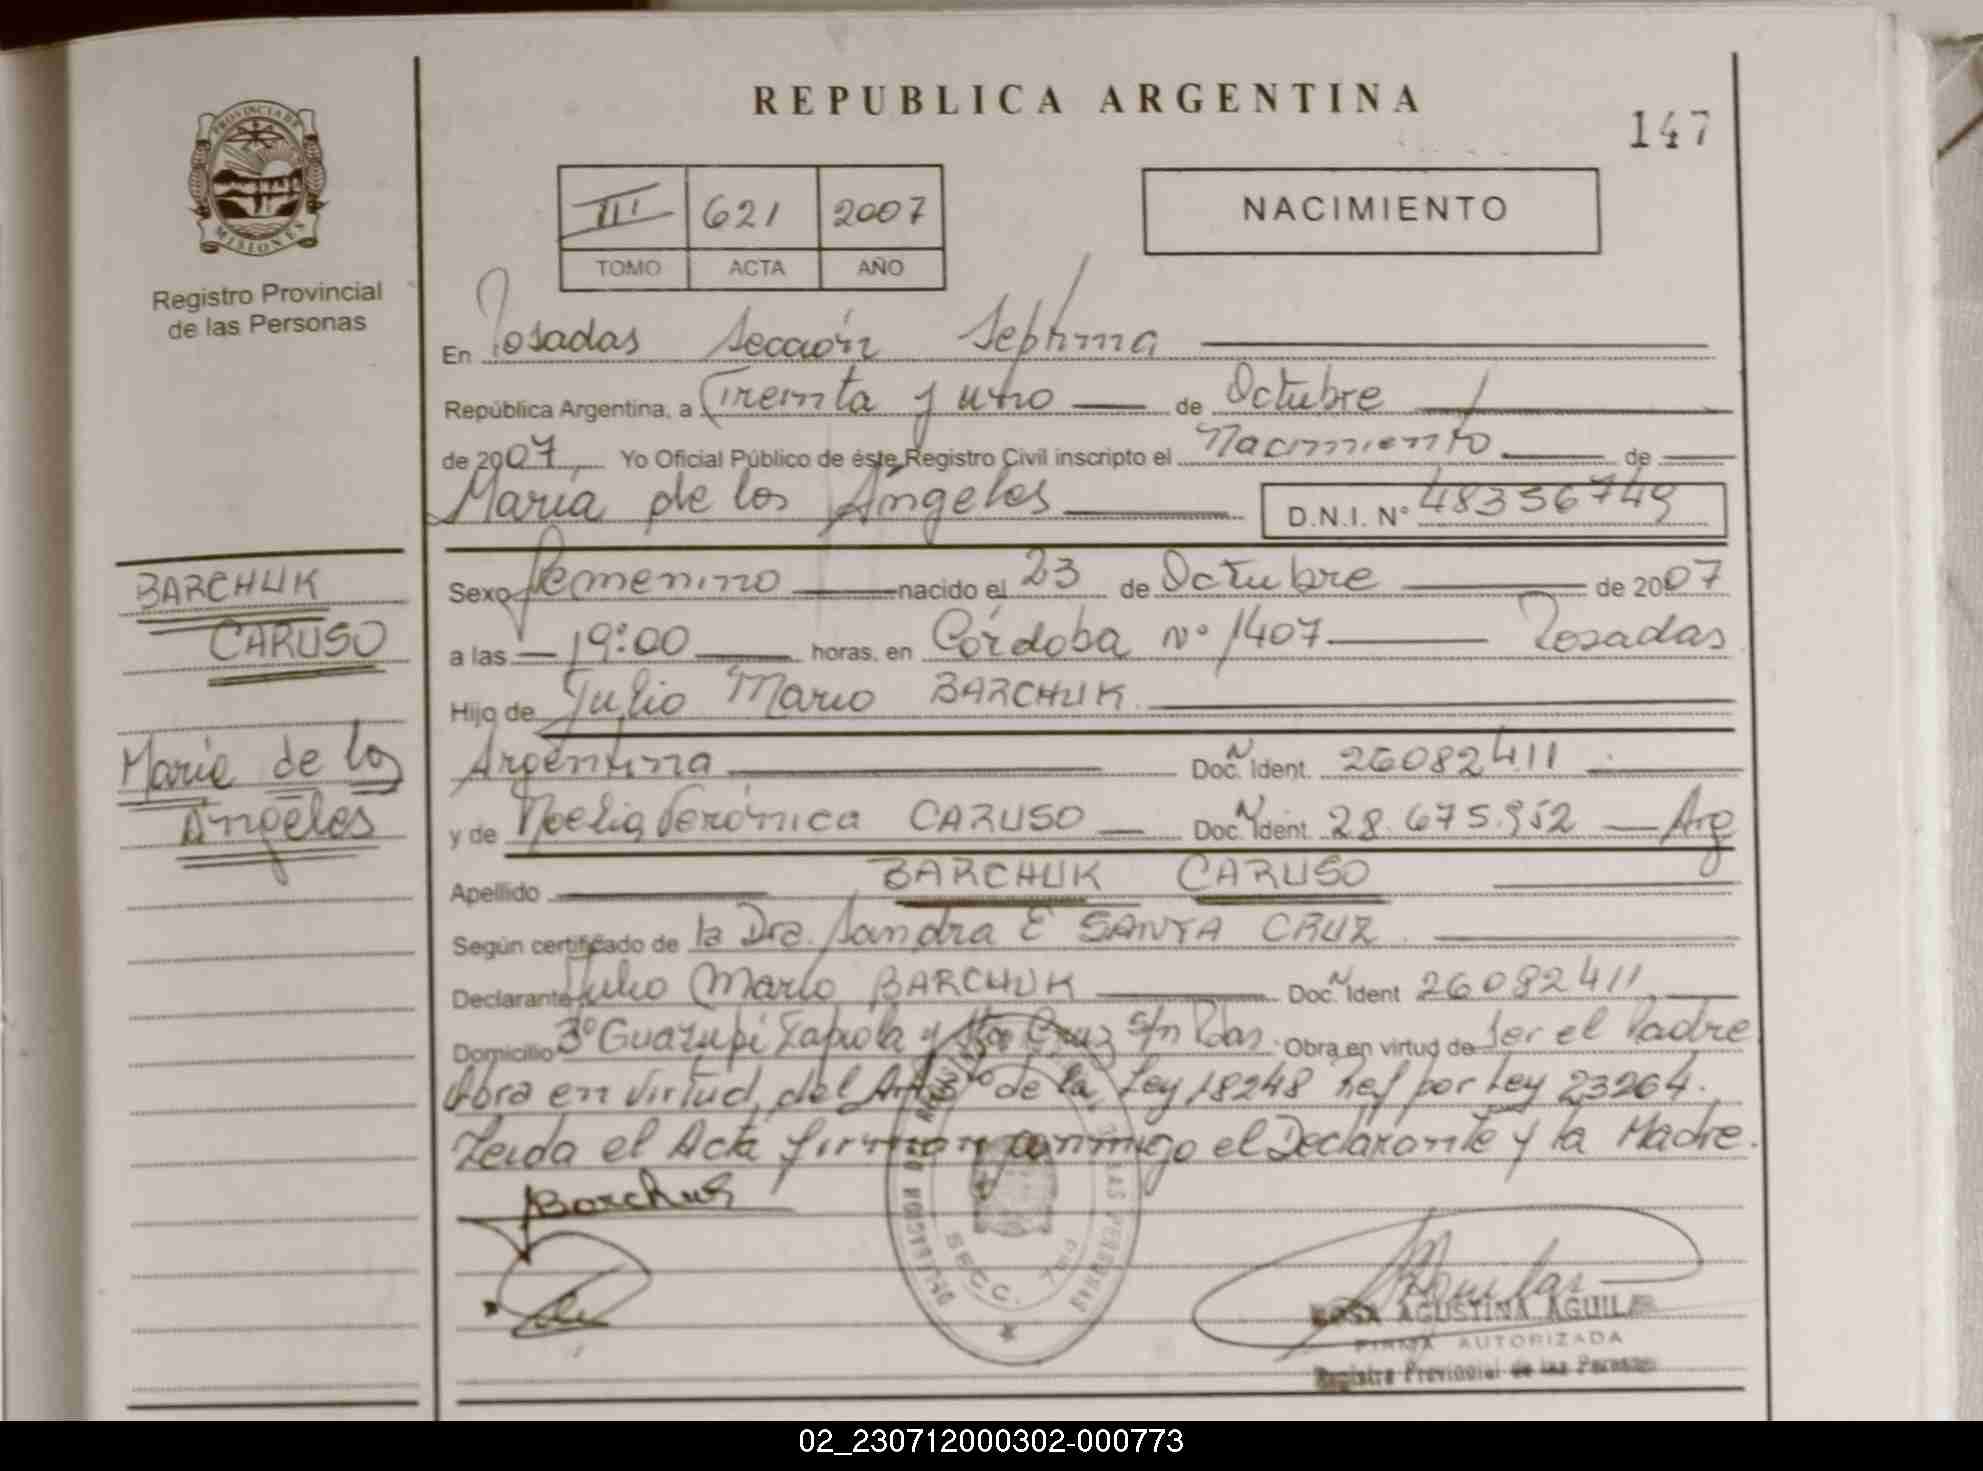 REPUBLICA ARGENTINA
147
PROVINCIA DE
MISIONES
Registro Provincial
de las Personas
III 621 2007
TOMO ACTA AÑO
NACIMIENTO
En Posadas Sección Septima
República Argentina, a Treinta y uno de Octubre
de 2007, Yo Oficial Público de éste Registro Civil inscripto el Nacimiento de
María de los Ángeles D.N.I. N° 48356749
BARCHUK
CARUSO
María de los
Ángeles
Sexo Femenino nacido el 23 de Octubre de 2007
a las 19:00 horas, en Córdoba N° 1407 Posadas
Hijo de Julio Mario BARCHUK
Argentina Doc. Ident. 26082411
y de Noelia Verónica CARUSO Doc. Ident. 28.675.952 Arg
Apellido BARCHUK CARUSO
Según certificado de la Dra. Sandra E SANTA CRUZ
Declarante Julio Mario BARCHUK Doc. Ident 26082411
Domicilio B° Guazupi Zapiola y Sta Cruz s/n Pdas. Obra en virtud de Ser el Padre
Obra en virtud del Art 3ro de la Ley 18248 Ref por Ley 23264.
Leida el Acta firman conmigo el Declarante y la Madre.
Barchuk
DELEGACION
DE LAS PERSONAS
SECC. 7ma
Aguilar
ROSA AGUSTINA AGUILAR
FIRMA AUTORIZADA
Registro Provincial de las Personas
02_230712000302-000773